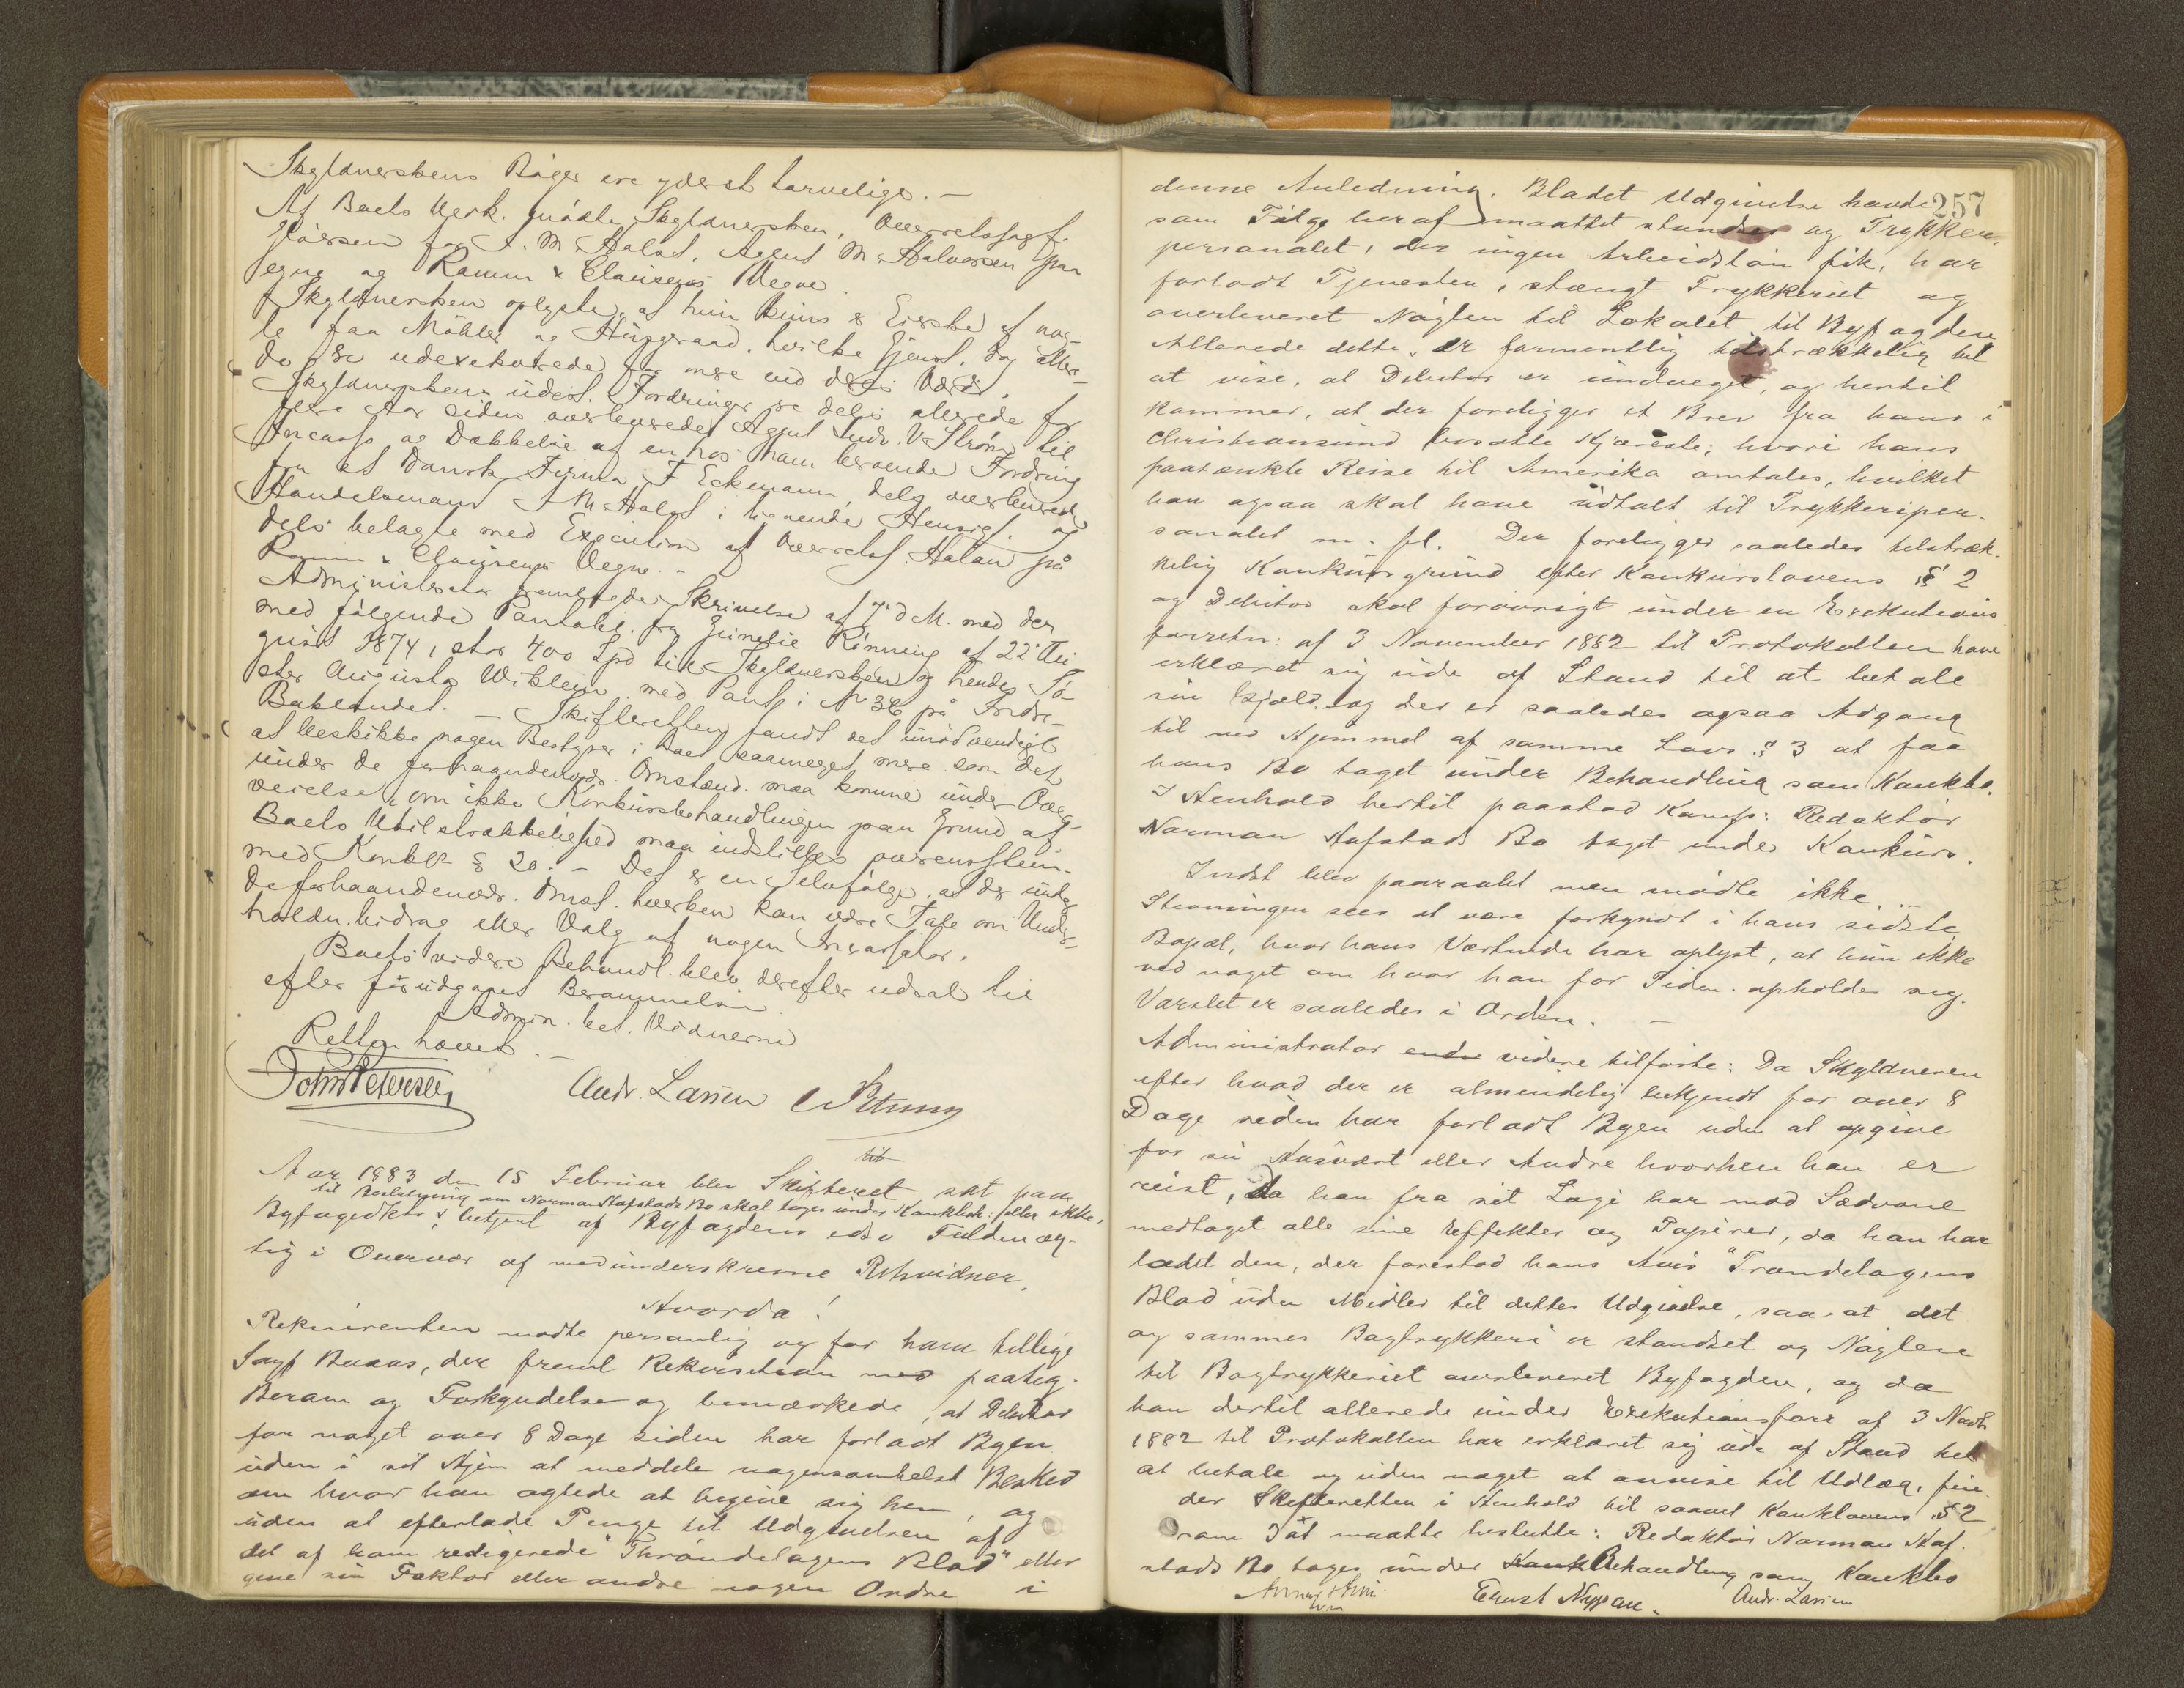 Skyldnerskens Bøger ere yderst tarvelige. –
Af Boets Verk. mødte Skyldnersken, Overretssagf.
for I. M. Holst, Agent M. Halvorsen paa
egne og Ramm & Clausens Vegne.
Skyldnersken oplyste, at hun kuns er Eierske af nog-
le faa Møbler og Husgeraad, hvilke Gjenst. dog alle-
de ere udexekverede for mere end deres Værd.
Skyldnerskens udest. Fordringer ere dels allerede for
flere Aar siden overleverede Agent Ludv. V. Strøm til
Incasso og Dækkelse af en hos ham beroende Fordring
fra et Dansk Firma F. Eckmann, dels overleverede
Handelsmand I. M. Holst i lignende Hensigt, og
dels belagte med Execution af Overretssf. på
Ramm & Clausens Vegne. –
Administrator fremlagde Skrivelse af 7 d M. med der-
med følgende Pantobl. fra Rønning af 22 Au-
gust 1874, stor 400 Spd til Skyldnersken og hendes Sø-
ster Augusta med Pant i No 36 på Indre-
Baklandet. – Skifteretten fandt det unødvendigt
at beskikke nogen Bestyrer i Boet saameget mere som det
under de forhaandenvær. Omstænd. maa komme under Over-
veielse, om ikke Konkursbehandlingen paa Grund af
Boets Utilstrækkelighed maa indstilles overensstem.
med Konkl. § 20. – Det er en Selvfølge, at der under
de forhaandenvær. Omst. hverken kan være Tale om Under-
holdn. bidrag eller Valg af nogen Incassator.
Boets videre Behandl. blev derefter udsat til
efter forudgaaet Berammelse.
Admin. bet. Vidnerne
Retten hævet. –
John Petersen Andr. Larsen
Aar 1883 den 15 Februar blev Skifteret sat paa
til Beslutning om Norman Hafstads Bo skal tages under Konkbeh: eller ikke,
Byfogedktr & betjent af Byfogdens edsv Fuldmæg-
tig i Overvær af medunderskrevne Retsvidner,
Hvorda!
Rekvirenten mødte personlig og for ham tillige
Sagf Buaas, der freml Rekvisition med paateg.
Beram og Forkyndelse og bemærkede, at Debitor
for noget over 8 Dage siden har forladt Byen
uden i sit Hjem at meddele nogensomhelst Besked
om hvor han agtede at begive sig hen, og
uden at efterlade Penge til Udgivelsen af
det af ham redigerede "Throndelagens Blad" eller
give sin Faktor eller andre nogen Ordre i
257
denne Anledning. Bladet Udgivelse havde
som Følge heraf maattet standses og Trykker-
personalet, der ingen Arbeidsløn fik, har
forladt Tjenesten, stængt Trykkeriet og
overleveret Nøglen til Lokalet til Byfogden
Allerede dette, er formentlig tilstrækkelig til
at vise, at Debitor er undveget, og hertil
kommer, at der foreligger et Brev fra hans i
Christiansund bosatte Kjæreste, hvori hans
paatænkte Reise til Amerika omtales, hvilket
han ogsaa skal have udtalt til Trykkeriper-
sonalet m. fl. Der foreligger saaledes tilstræk-
kelig Konkursgrund efter Konkurslovens § 2
og Debitor skal forøvrigt under en Exekutions
forretn: af 3 November 1882 til Protokollen have
erklæret sig ude af Stand til at betale
sin Gjæld og der er saaledes ogsaa Adgang
til ved Hjemmel af samme Lovs § 3 at faa
hans Bo taget under Behandling som Konkbo.
I Henhold hertil paastod Komp: Redaktør
Norman Hafstads Bo taget under Konkurs.
Indst blev paaraabt men mødte ikke. –
Stevningen sees at være forkyndt i hans sidste
Bopæl, hvor hans Værtinde har oplyst, at hun ikke
ved noget om hvor han for Tiden opholder sig.
Varslet er saaledes i Orden. –
Administrator endv videre tilførte: Da Skyldneren
efter hvad der er almindelig bekjendt for over 8
Dage siden har forladt Byen uden at opgive
for sin Husvært eller Andre hvorhen han er
reist, da han fra sit Logi har mod Sædvane
medtaget alle sine Effekter og Papirer, da han har
ladet den, der forestod hans Avis "Trondelagens
Blad uden Midler til dettes Udgivelse, saa at det
og sammes Bogtrykkeri er standset og Nøglene
til Bogtrykkeriet overleveret Byfogden, og da
han dertil allerede under Exekutionsforr af 3 Novb
1882 til Protokollen har erklæret sig ude af Stand til
at betale og uden noget at anvise til Udlæg, fin-
der Skifteretten i Henhold til saavel Konklovens § 2
som 3 at maatte beslutte: Redaktør Norman Haf-
stads Bo tages under Konk Behandling som Konkbo
Ernst Nyssen. Andr. Larsen